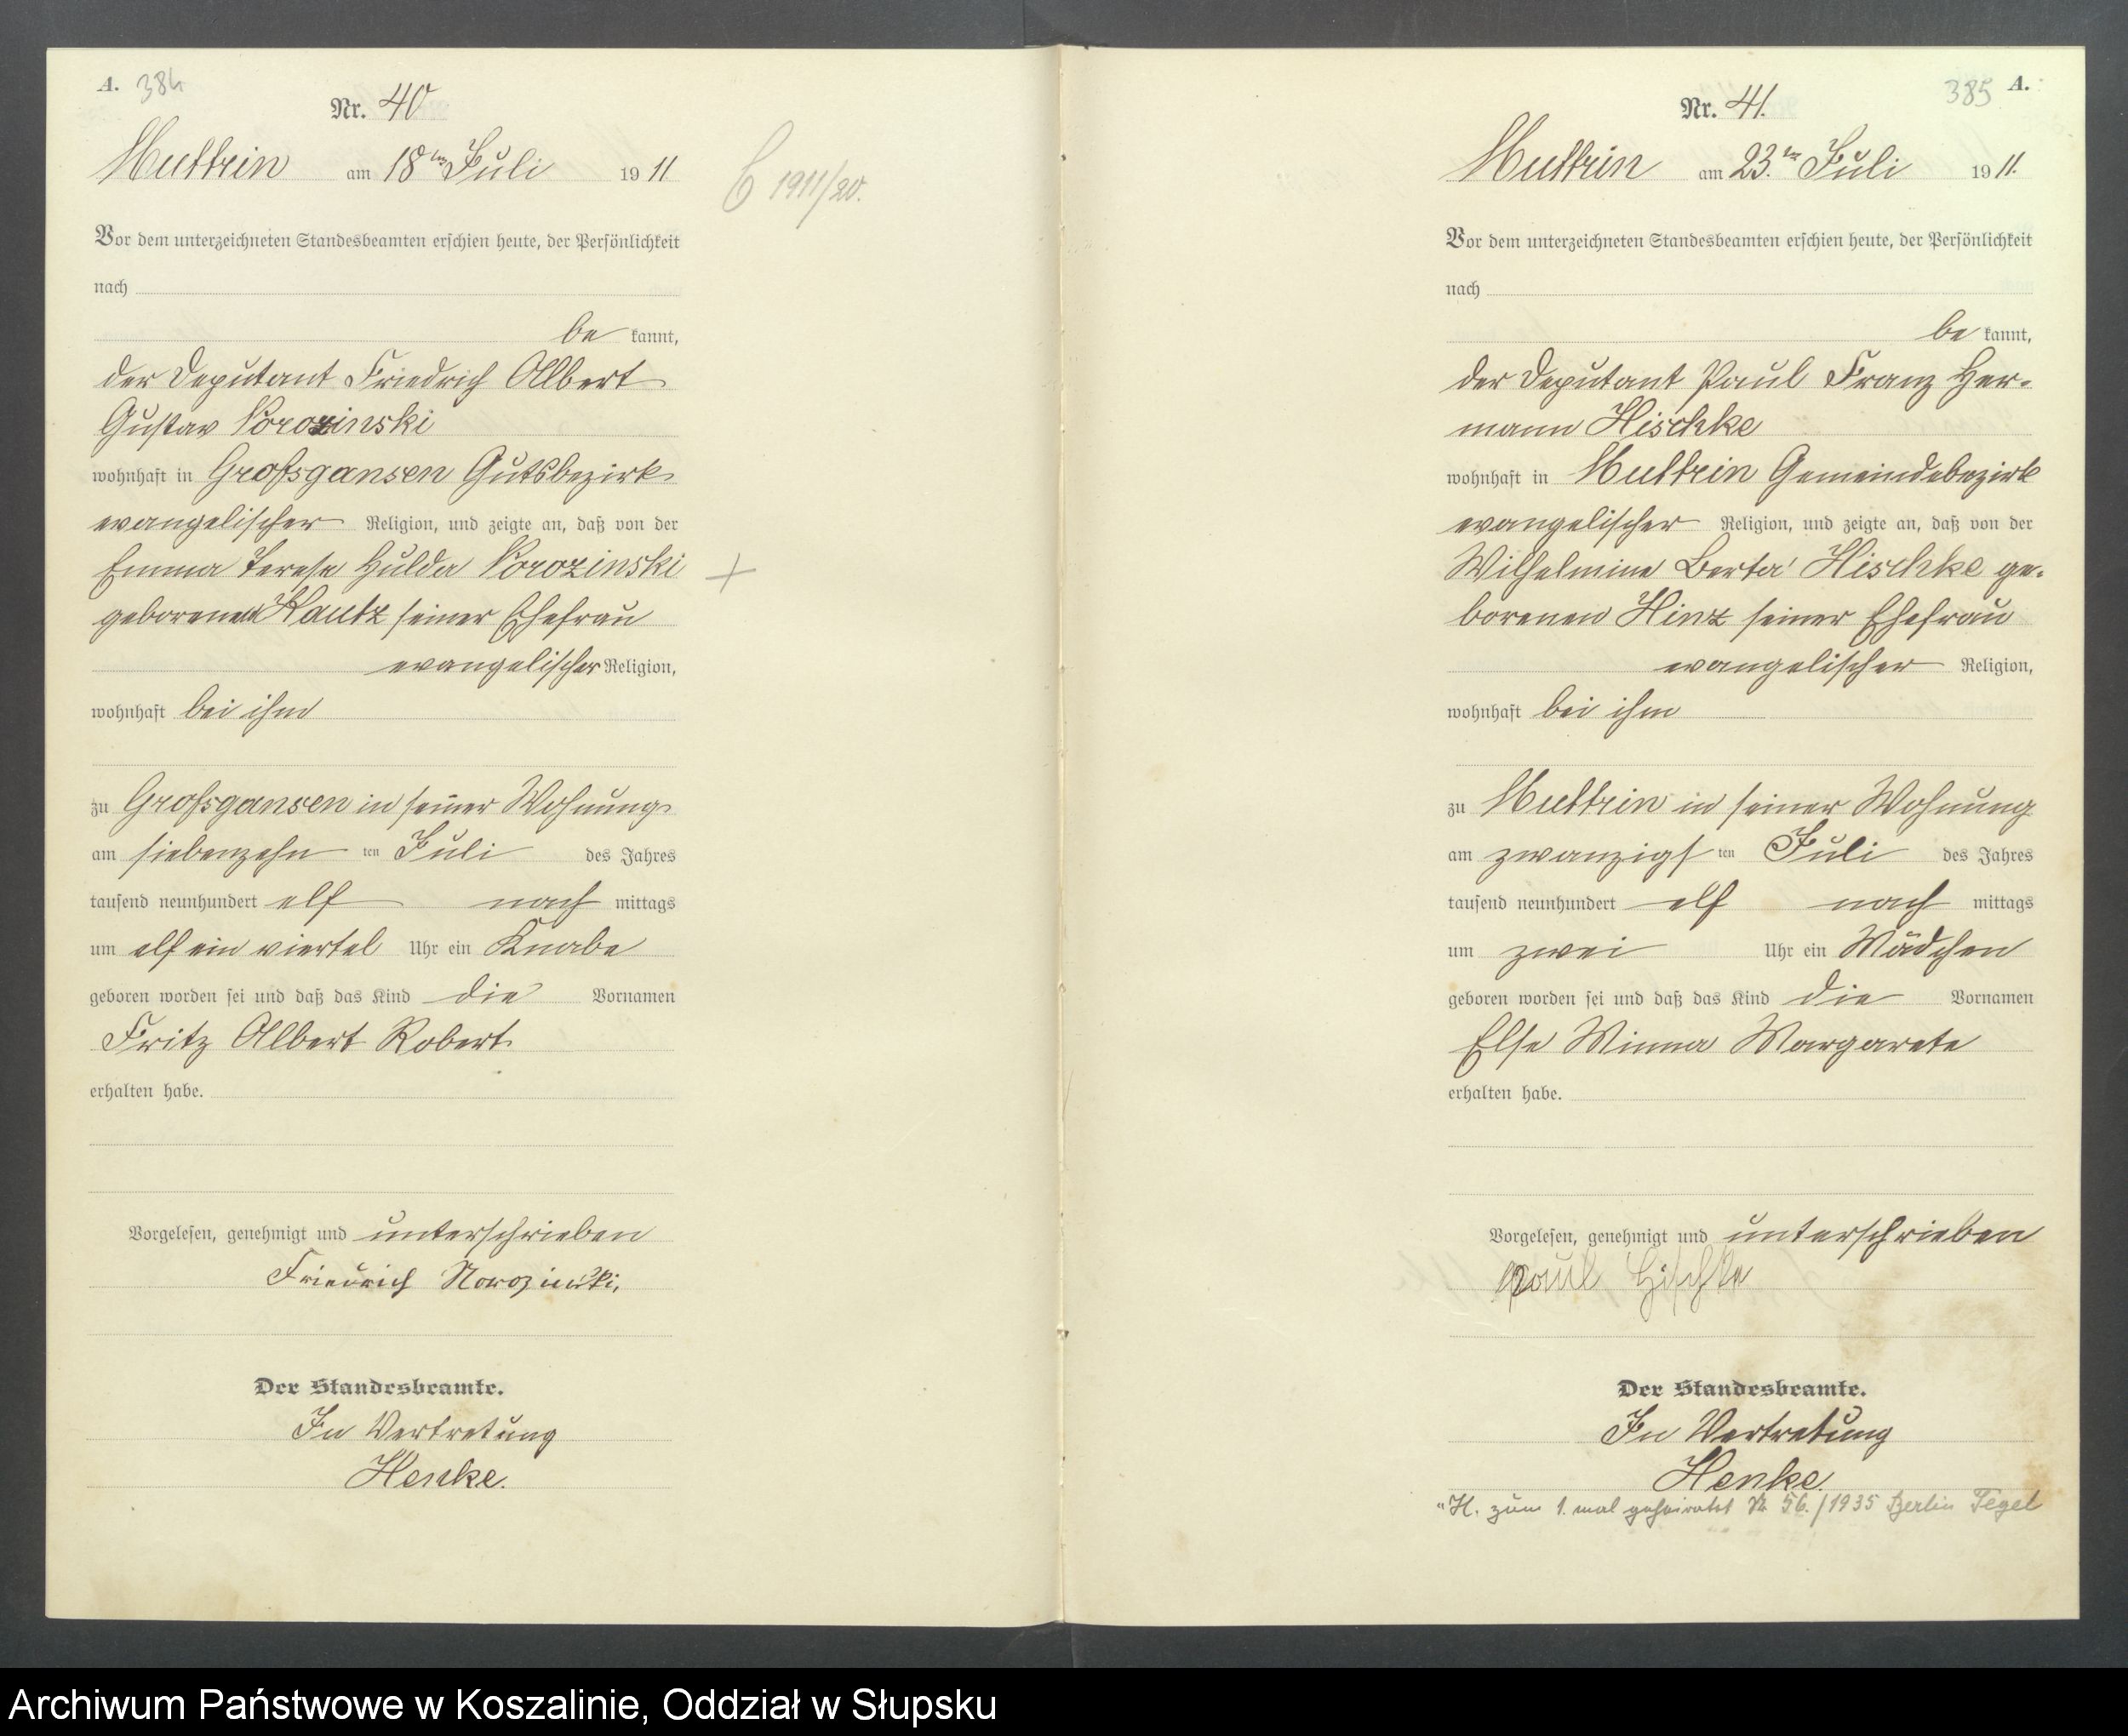 A. 384
Nr. 40
Muttrin am 18ten Juli 1911
C 1911/20.
Vor dem unterzeichneten Standesbeamten erschien heute, der Persönlichkeit
nach
be kannt,
der Deputant Friedrich Albert
Gustav Norozinski
wohnhaft in Großgansen Gutsbezirk
evangelischer Religion, und zeigte an, daß von der
Emma Terese Hulda Norozinski
geborenen Kautz seiner Ehefrau
evangelischer Religion,
wohnhaft bei ihm
zu Großgansen in seiner Wohnung
am siebenzehn ten Juli des Jahres
tausend neunhundert elf nach mittags
um elf ein viertel Uhr ein Knabe
geboren worden sei und daß das Kind die Vornamen
Fritz Albert Robert
erhalten habe.
Vorgelesen, genehmigt und unterschrieben
Friedrich Norozinski,
Der Standesbeamte.
In Vertretung
Henke.
385 A.
Nr. 41.
Muttrin am 23.ten Juli 1911.
Vor dem unterzeichneten Standesbeamten erschien heute, der Persönlichkeit
nach
be kannt,
der Deputant Paul Franz Her-
mann Hischke
wohnhaft in Muttrin Gemeindebezirk
evangelischer Religion, und zeigte an, daß von der
Wilhelmine Berta Hischke ge-
borenen Hinz seiner Ehefrau
evangelischer Religion,
wohnhaft bei ihm
zu Muttrin in seiner Wohnung
am zwanzigs ten Juli des Jahres
tausend neunhundert elf nach mittags
um zwei Uhr ein Mädchen
geboren worden sei und daß das Kind die Vornamen
Else Minna Margarete
erhalten habe.
Vorgelesen, genehmigt und unterschrieben
Paul Hischke
Der Standesbeamte.
In Vertretung
Henke.
"H. zum 1. mal geheiratet Nr. 56./1935 Berlin Tegel
Archiwum Państwowe w Koszalinie, Oddział w Słupsku